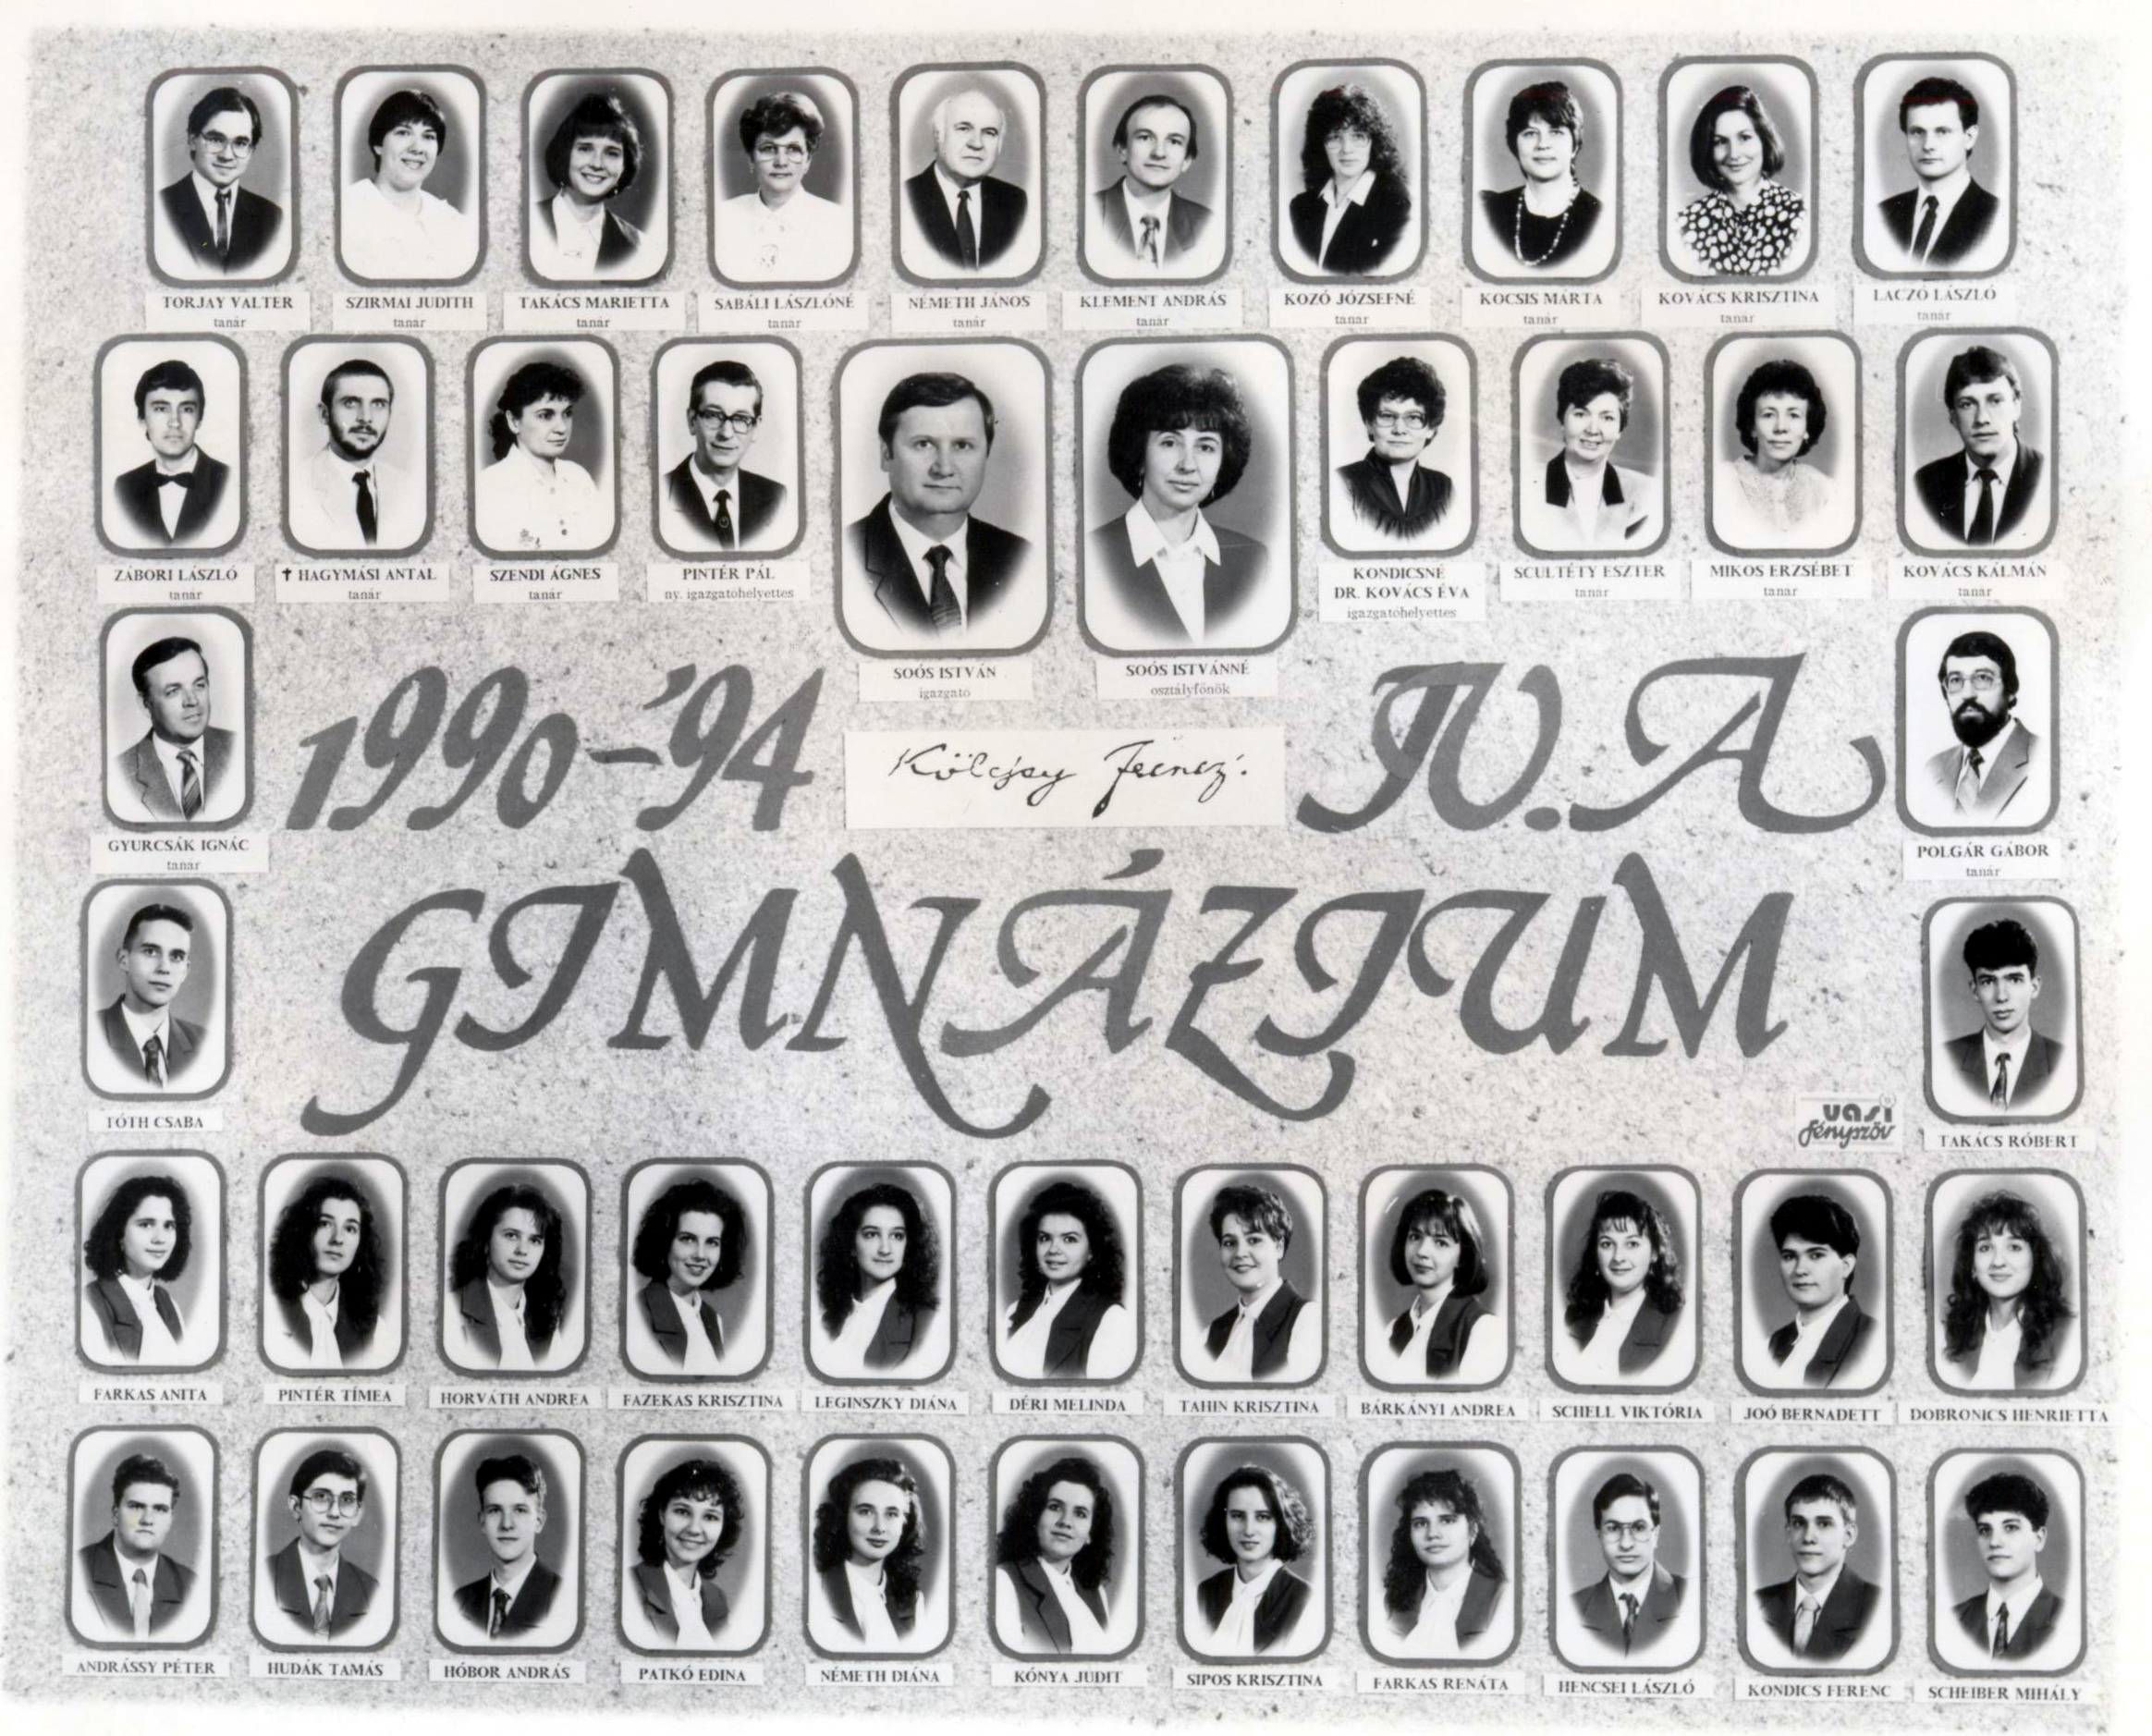 TORJAY VALTER
tanár
SZIRMAI JUDITH
tanár
TAKÁCS MARIETTA
tanár
SABÁLI LÁSZLÓNÉ
tanár
NÉMETH JÁNOS
tanár
KLEMENT ANDRÁS
tanár
KOZÓ JÓZSEFNÉ
tanár
KOCSIS MÁRTA
tanár
KOVÁCS KRISZTINA
tanár
LACZÓ LÁSZLÓ
tanár
ZÁBORI LÁSZLÓ
tanár
✝ HAGYMÁSI ANTAL
tanár
SZENDI ÁGNES
tanár
PINTÉR PÁL
ny. igazgatóhelyettes
SOÓS ISTVÁN
igazgató
SOÓS ISTVÁNNÉ
osztályfőnök
KONDICSNÉ
DR. KOVÁCS ÉVA
igazgatóhelyettes
SCULTÉTY ESZTER
tanár
MIKOS ERZSÉBET
tanár
KOVÁCS KÁLMÁN
tanár
GYURCSÁK IGNÁC
tanár
1990-'94
Kölcsey Ferencz.
IV. A
POLGÁR GÁBOR
tanár
GIMNÁZIUM
TÓTH CSABA
vasi
fényszöv
TAKÁCS RÓBERT
FARKAS ANITA
PINTÉR TÍMEA
HORVÁTH ANDREA
FAZEKAS KRISZTINA
LEGINSZKY DIÁNA
DÉRI MELINDA
TAHIN KRISZTINA
BÁRKÁNYI ANDREA
SCHELL VIKTÓRIA
JOÓ BERNADETT
DOBRONICS HENRIETTA
ANDRÁSSY PÉTER
HUDÁK TAMÁS
HÓBOR ANDRÁS
PATKÓ EDINA
NÉMETH DIÁNA
KÓNYA JUDIT
SIPOS KRISZTINA
FARKAS RENÁTA
HENCSEI LÁSZLÓ
KONDICS FERENC
SCHEIBER MIHÁLY